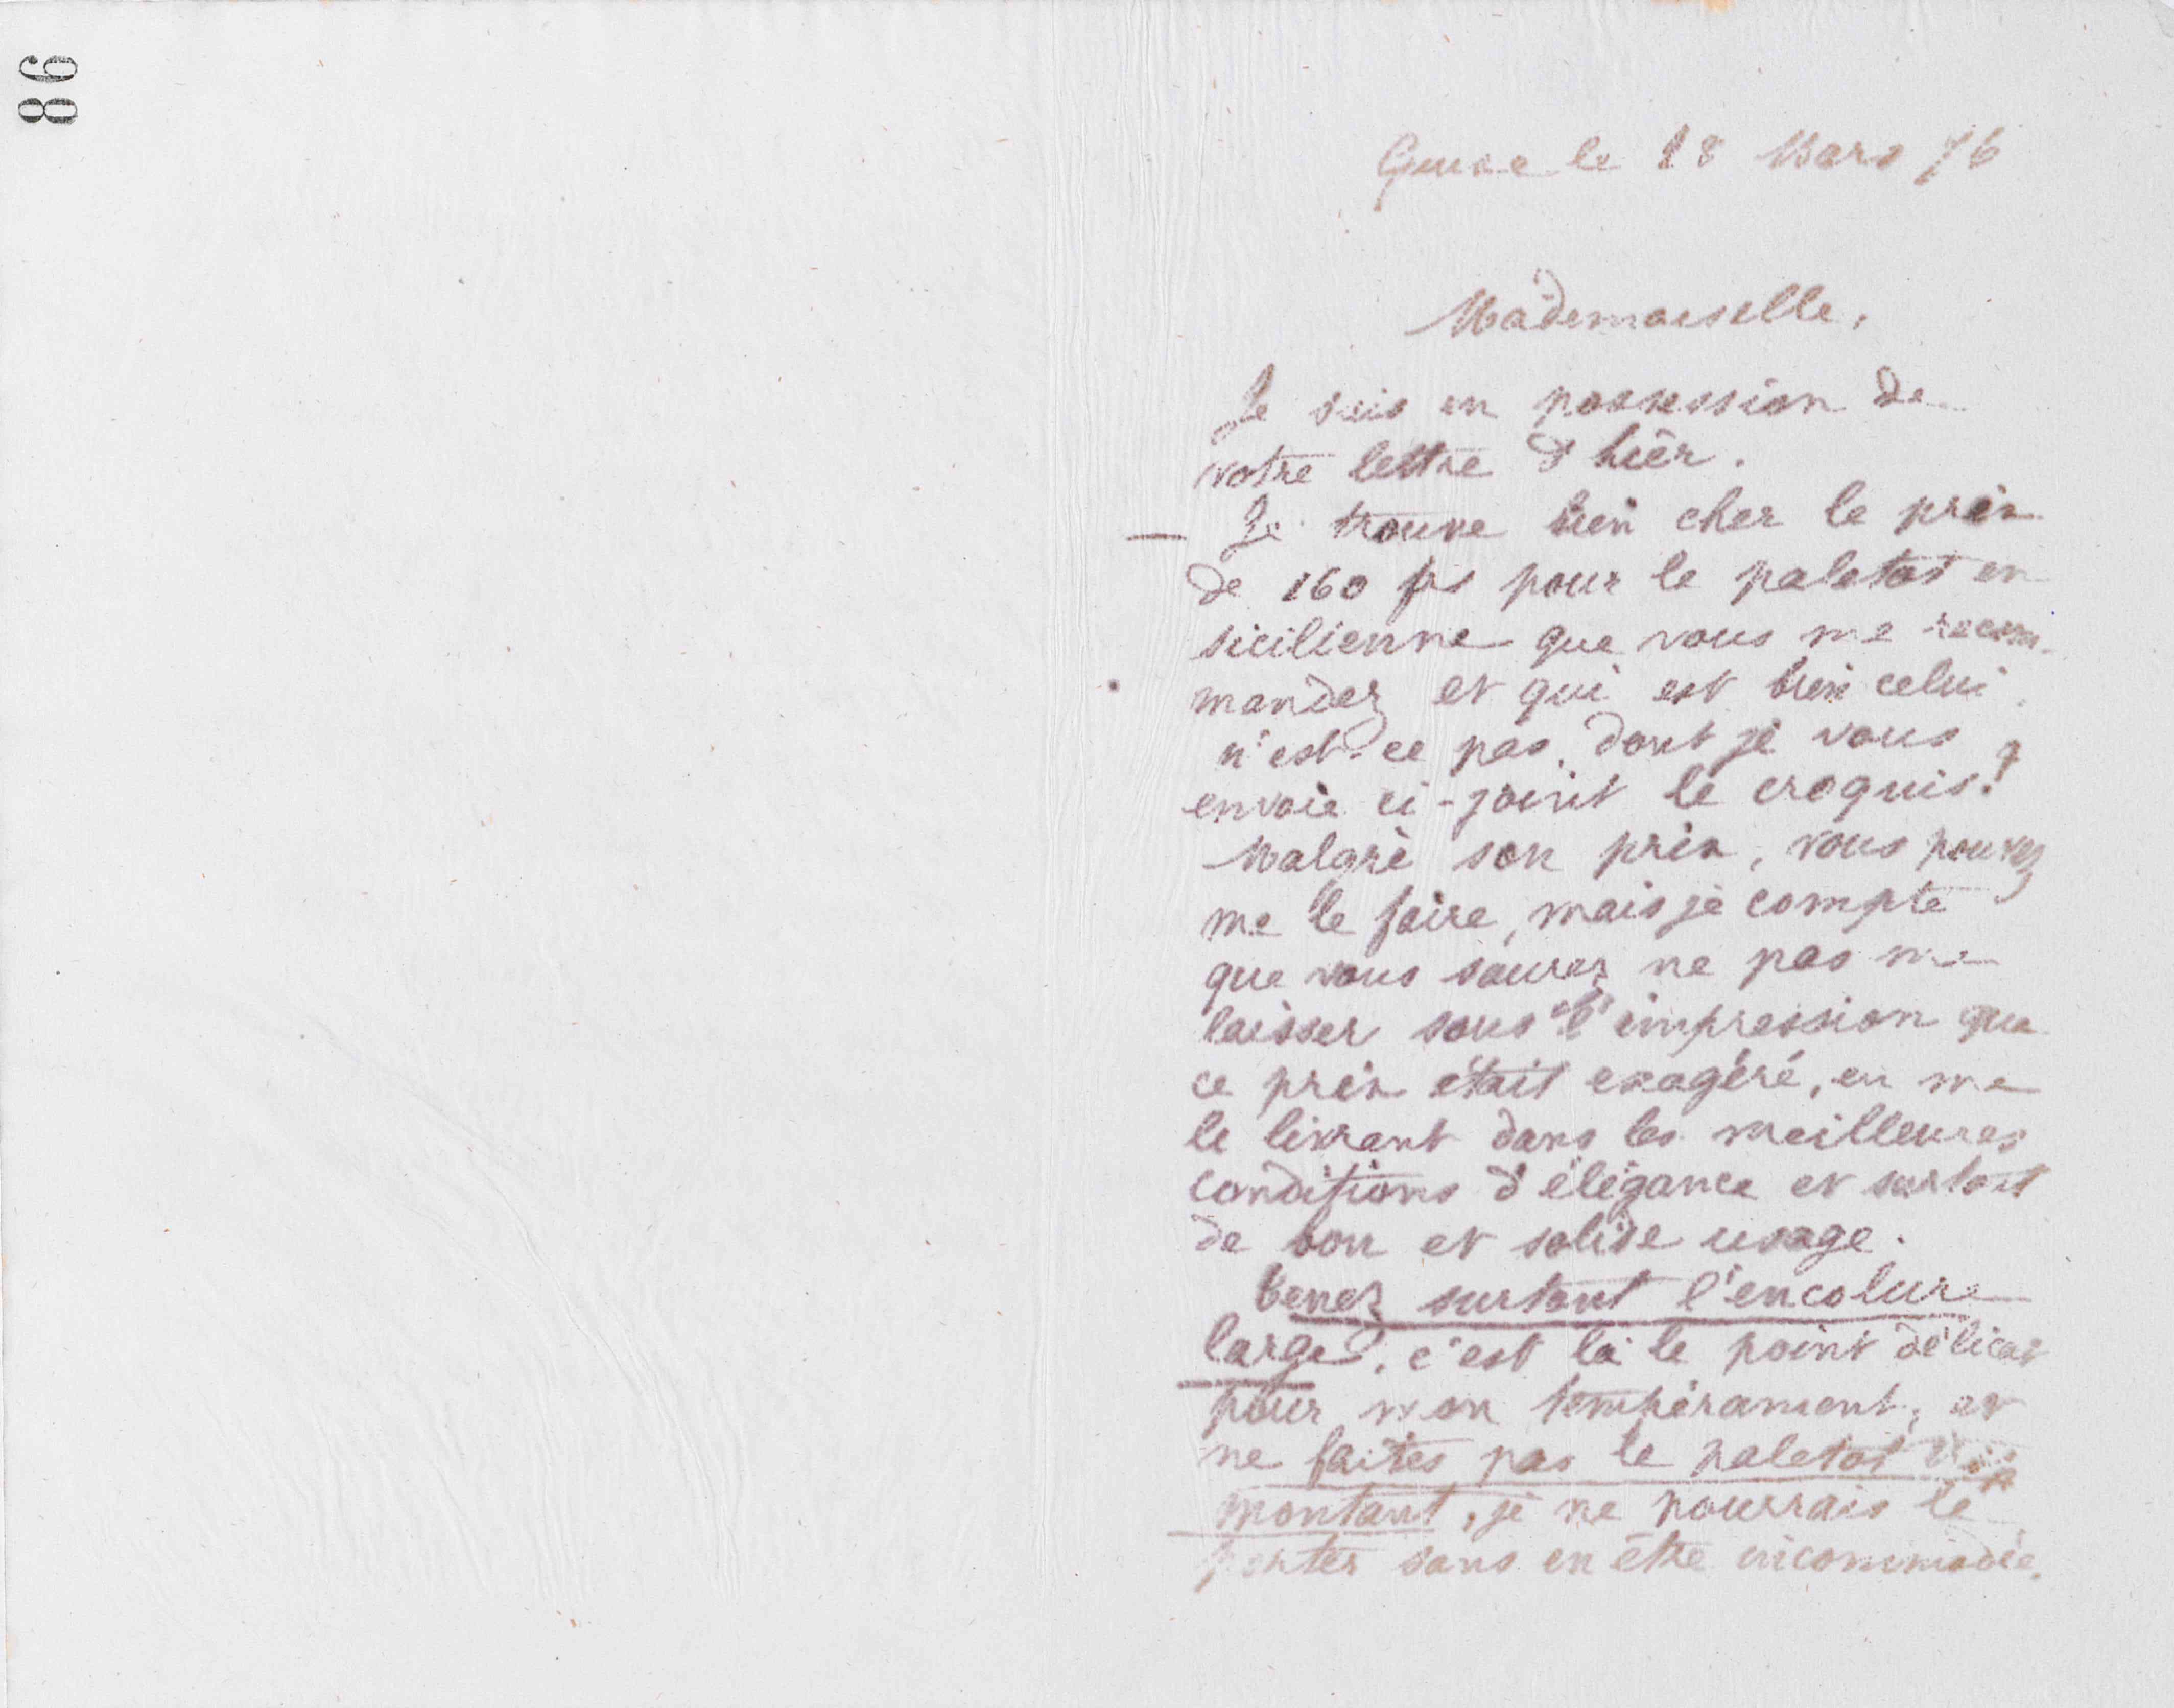 86
Guise le 18 Mars 76
Mademoiselle,
Je suis en possession de
votre lettre d'hier.
— Je trouve bien cher le prix
de 160 frs pour le paletot en
sicilienne que vous me recom-
mandez et qui est bien celui,
n'est-ce pas, dont je vous
envoie ci-joint le croquis?
Malgré son prix, vous pouvez
me le faire, mais je compte
que vous saurez ne pas me
laisser sous l'impression que
ce prix était exagéré, en me
le livrant dans les meilleures
conditions d'élégance et surtout
de bon et solide usage.
Tenez surtout l'encolure
large, c'est là le point délicat
pour mon tempérament, et
ne faites pas le paletot trop
montant, je ne pourrais le
porter sans en être incommodée.